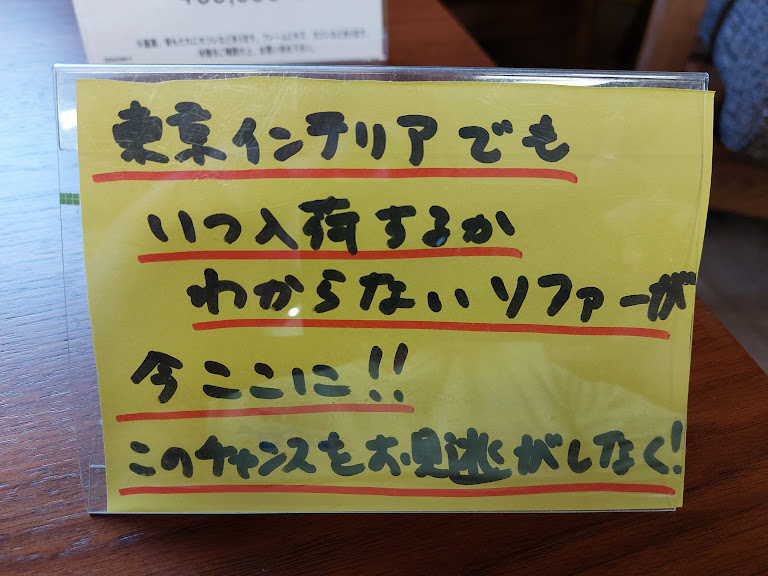 東京インテリアでも
いつ入荷するか
わからないソファーが
今ここに!!
このチャンスもお見逃がしなく!